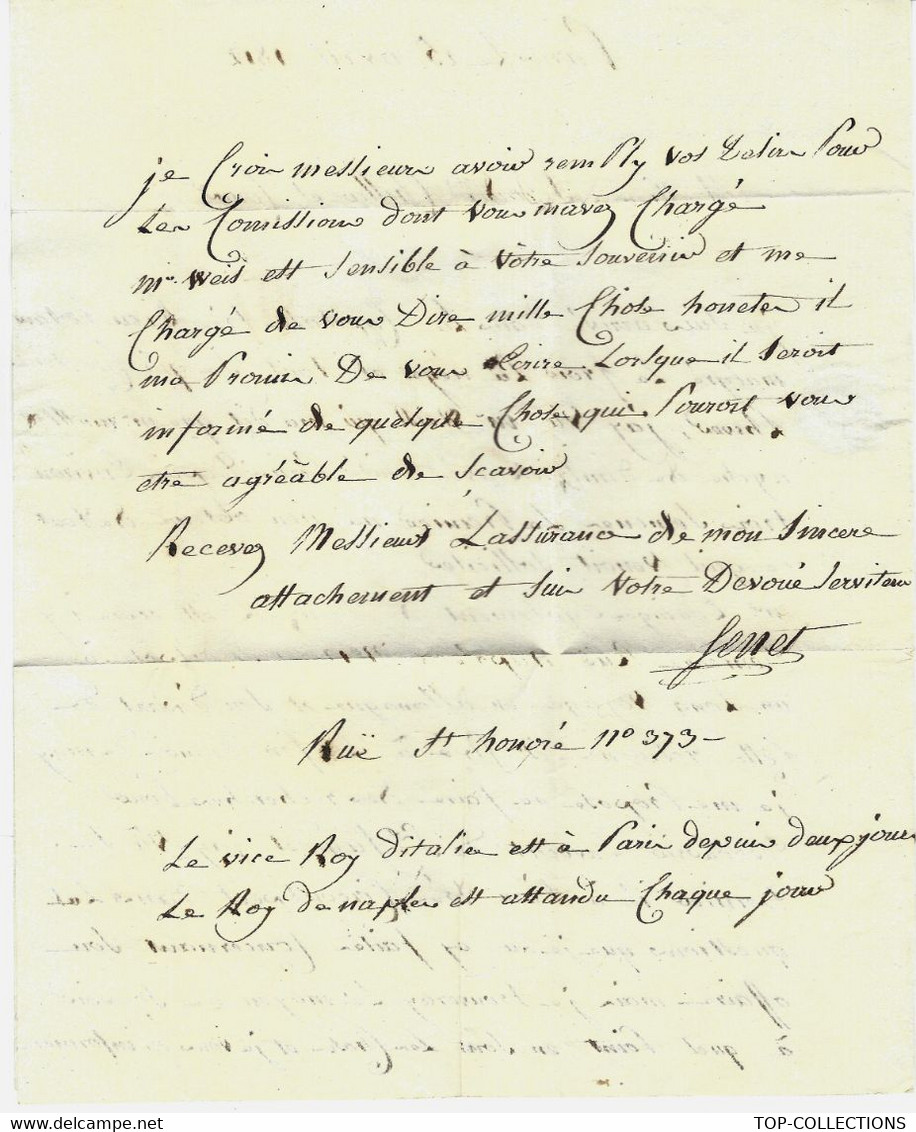 je Crois messieurs avoir remply vos Desirs Pour
Les Comissions dont vous mavez Chargé
mr. Weis est sensible à Votre souvenir et me
Chargé de vous Dire mille Chose honetes il
ma Promis De vous Ecrire Lorsque il seroit
informé de quelque Chose qui Pouroit vous
etre agréable de scavoir
Recevez Messieurs L'assurance de mon sincere
attachement et suis Votre Devoué serviteur
Genet
Ruë St honoré no 373-
Le vice Roy ditalie est à Paris depuis deux jours
Le Roy de naples est attandu Chaque jour
TOP-COLLECTIONS